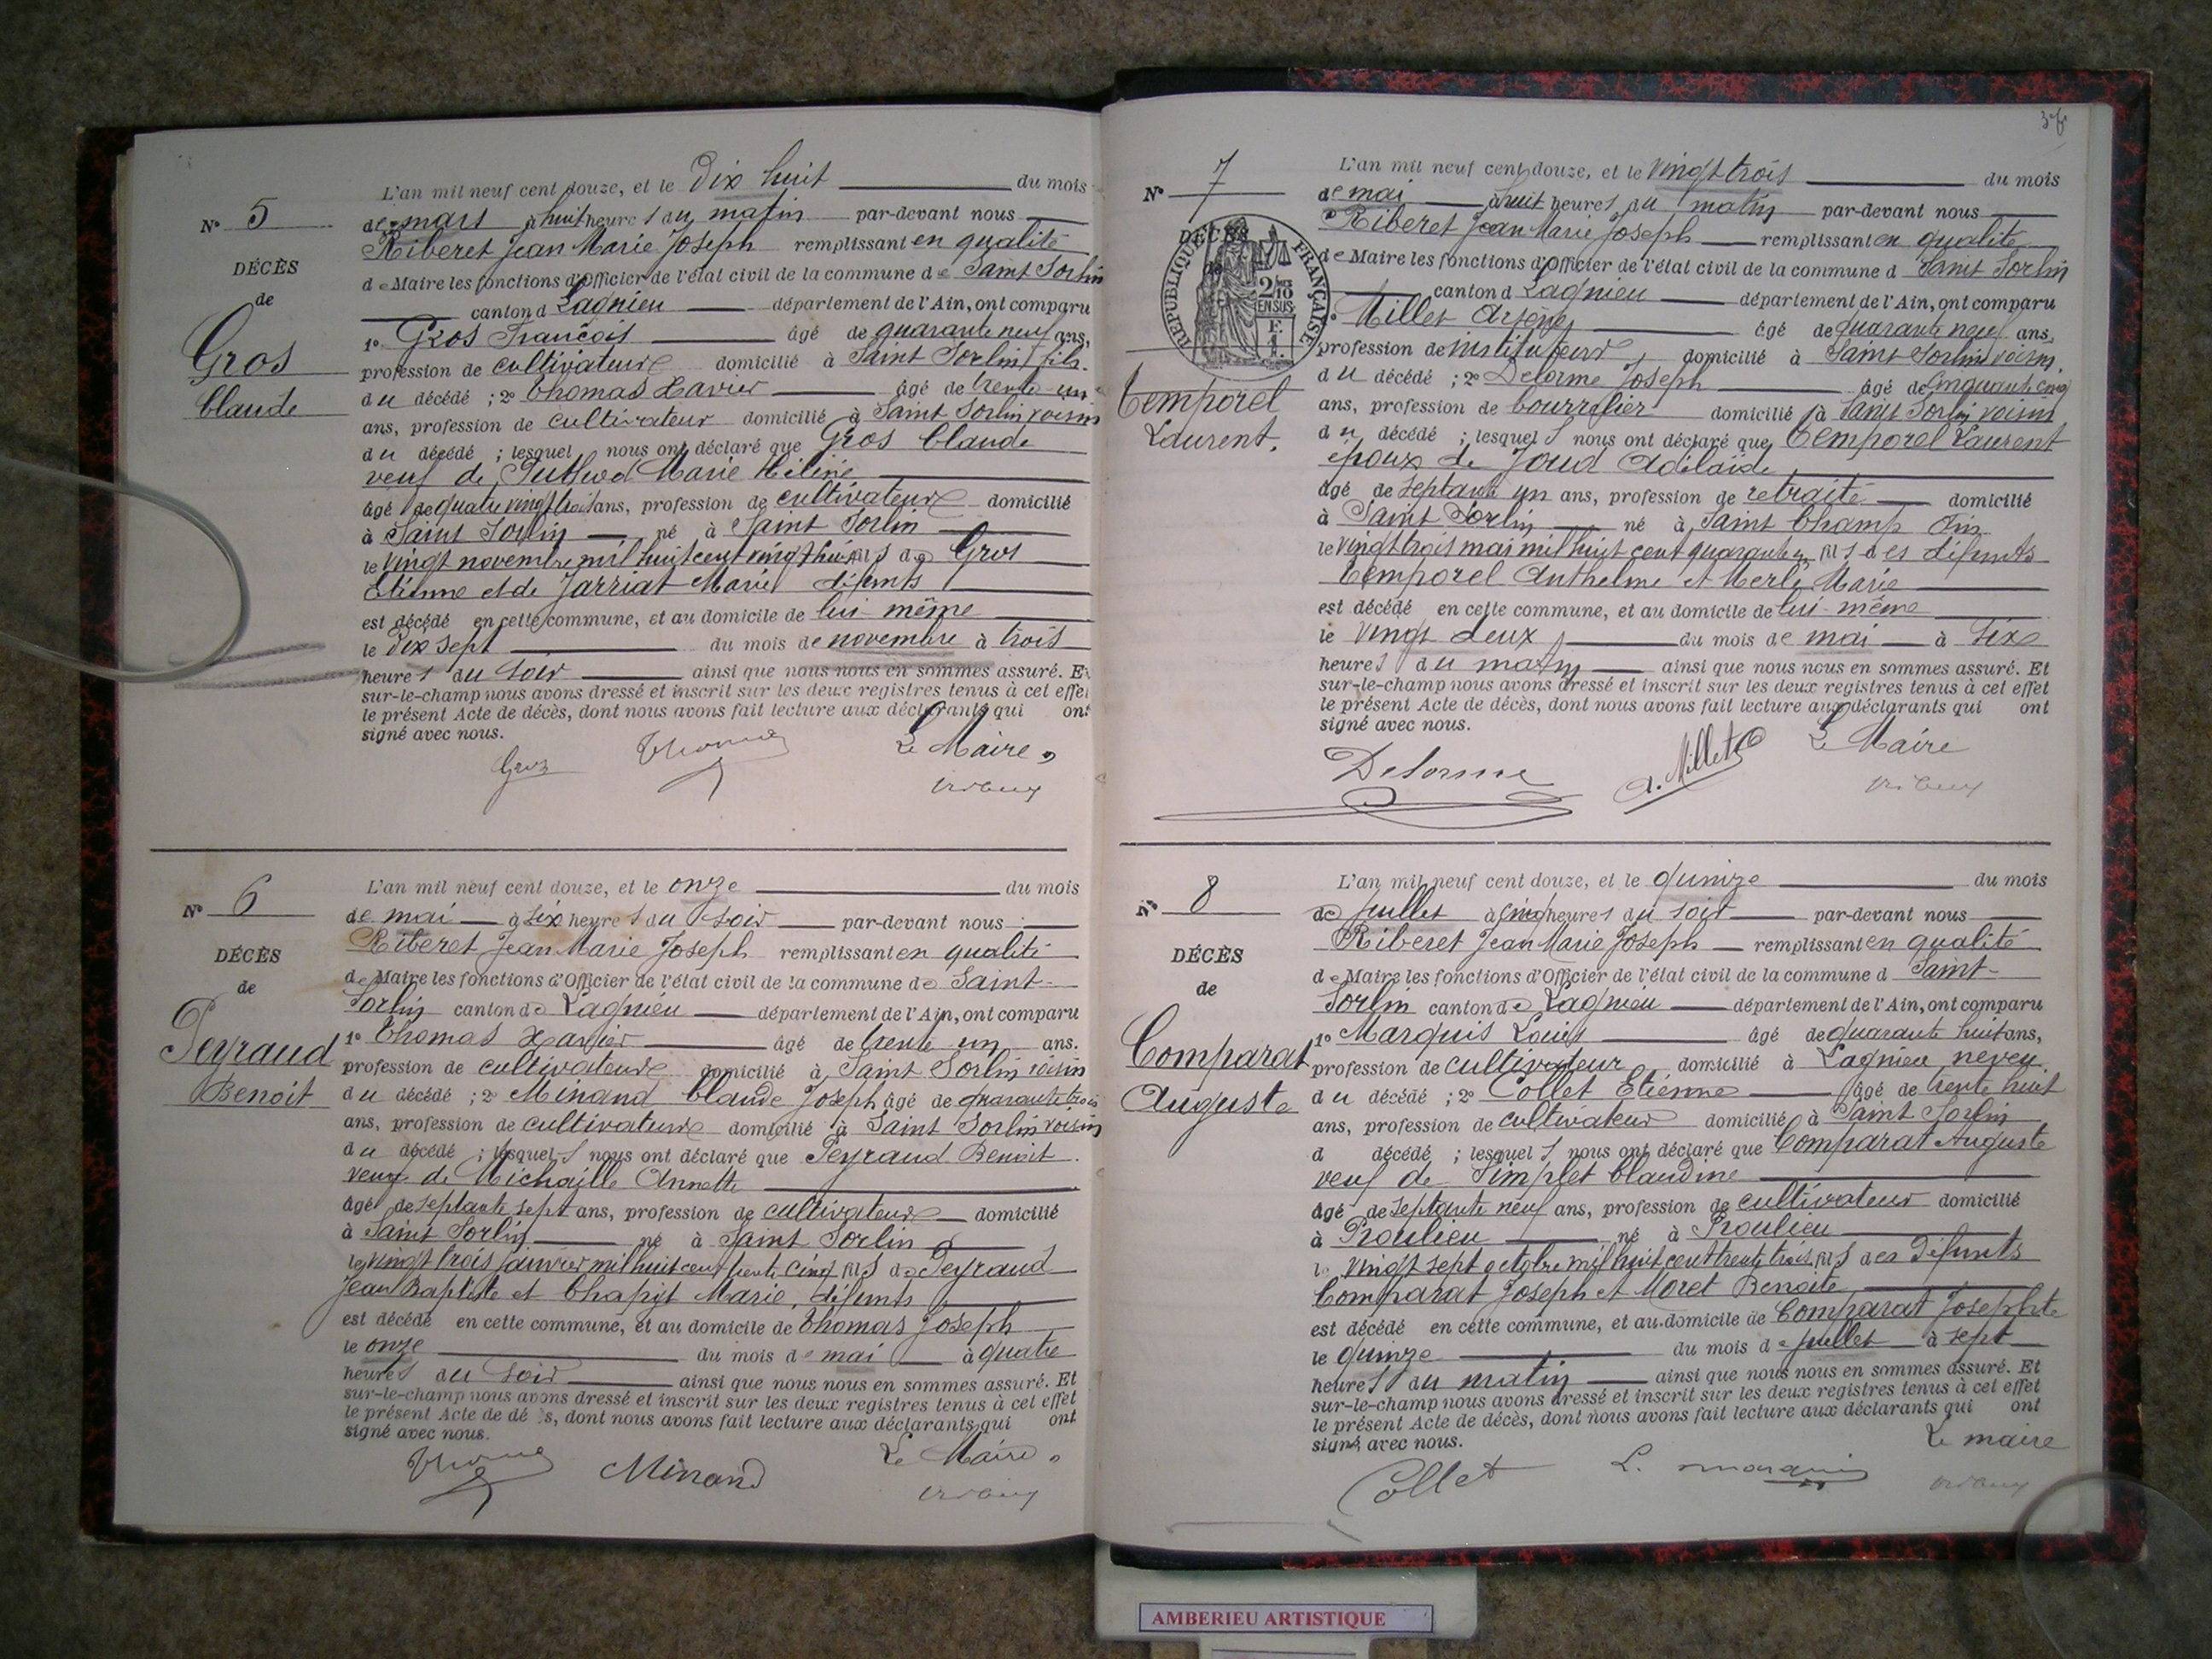 L'an mil neuf cent douze, et le Dix huit du mois
N° 5 de mars à huit heures du matin par-devant nous
Riberet Jean Marie Joseph remplissant en qualité
DÉCÈS
de Maire les fonctions d'Officier de l'état civil de la commune de Saint Sorlin
de
canton d Lagnieu département de l'Ain, ont comparu
1° Gros François âgé de quarante neuf ans,
Gros
profession de cultivateur domicilié à Saint Sorlin fils
Claude
du décédé ; 2° Thomas Xavier âgé de trente un
ans, profession de cultivateur domicilié à Saint Sorlin voisin
du décédé ; lesquel nous ont déclaré que Gros Claude
veuf de Marie
âgé de quatre vingt trois ans, profession de cultivateur domicilié
à Saint Sorlin né à Saint Sorlin
le vingt novembre mil huit cent vingt huit fils de Gros
Etienne et de Jarriat Marie défunts
est décédé en cette commune, et au domicile de lui même
le Dix sept du mois de novembre à trois
heures du soir ainsi que nous nous en sommes assuré. Et
sur-le-champ nous avons dressé et inscrit sur les deux registres tenus à cet effet
le présent Acte de décès, dont nous avons fait lecture aux déclarants qui ont
signé avec nous.
Gros Thomas Le Maire,
L'an mil neuf cent douze, et le onze du mois
N° 6 de mai à six heures du soir par-devant nous
Riberet Jean Marie Joseph remplissant en qualité
DÉCÈS
de Maire les fonctions d'Officier de l'état civil de la commune de Saint-
de
Sorlin canton de Lagnieu département de l'Ain, ont comparu
1° Thomas Xavier âgé de trente un ans.
Peyraud
profession de cultivateur domicilié à Saint Sorlin voisin
Benoit
du décédé ; 2° Minand Claude Joseph âgé de quarante trois
ans, profession de cultivateur domicilié à Saint Sorlin voisin
du décédé ; lesquels nous ont déclaré que Peyraud Benoit
veuf de Michaille Annette
âgé de septante sept ans, profession de cultivateur domicilié
à Saint Sorlin né à Saint Sorlin
le vingt trois janvier mil huit cent trente cinq fils de Peyraud
Jean Baptiste et Chapit Marie, défunts
est décédé en cette commune, et au domicile de Thomas Joseph
le onze du mois de mai à quatre
heures du soir ainsi que nous nous en sommes assuré. Et
sur-le-champ nous avons dressé et inscrit sur les deux registres tenus à cet effet
le présent Acte de dé s, dont nous avons fait lecture aux déclarants qui ont
signé avec nous.
Thomas Minand Le Maire,
L'an mil neuf cent douze, et le vingt trois du mois
N° 7 de mai à huit heures du matin par-devant nous
Riberet Jean Marie Joseph remplissant en qualité
DÉCÈS
RÉPUBLIQUE FRANÇAISE
2/10 EN SUS
de Maire les fonctions d'Officier de l'état civil de la commune d Saint Sorlin
canton d Lagnieu département de l'Ain, ont comparu
Millet Arsène âgé de quarante neuf ans,
profession de instituteur domicilié à Saint Sorlin voisin
Temporel
Laurent.
du décédé ; 2° Delorme Joseph âgé de cinquante cinq
ans, profession de bourrelier domicilié à Saint Sorlin voisin
du décédé ; lesquels nous ont déclaré que Temporel Laurent
époux de Joud Adélaïde
âgé de septante un ans, profession de retraité domicilié
à Saint Sorlin né à Saint Champ Ain
le vingt trois mai mil huit cent quarante un fils des défunts
Temporel Anthelme et Merle Marie
est décédé en cette commune, et au domicile de lui-même
le vingt deux du mois de mai à six
heures du matin ainsi que nous nous en sommes assuré. Et
sur-le-champ nous avons dressé et inscrit sur les deux registres tenus à cet effet
le présent Acte de décès, dont nous avons fait lecture aux déclarants qui ont
signé avec nous.
Delorme A. Millet Le Maire
L'an mil neuf cent douze, et le quinze du mois
N° 8 de juillet à cinq heures du soir par-devant nous
Riberet Jean Marie Joseph remplissant en qualité
DÉCÈS
de Maire les fonctions d'Officier de l'état civil de la commune d Saint-
de
Sorlin canton de Lagnieu département de l'Ain, ont comparu
1° Marquis Louis âgé de quarante huit ans,
Comparat
profession de cultivateur domicilié à Lagnieu neveu
Auguste
du décédé ; 2° Collet Etienne âgé de trente huit
ans, profession de cultivateur domicilié à Saint Sorlin
d décédé ; lesquels nous ont déclaré que Comparat Auguste
veuf de Simplet Claudine
âgé de septante neuf ans, profession de cultivateur domicilié
à Proulieu né à Proulieu
le vingt sept octobre mil huit cent trente trois fils des défunts
Comparat Joseph et Moret Benoite
est décédé en cette commune, et au domicile de Comparat Josephte
le quinze du mois de juillet à sept
heures du matin ainsi que nous nous en sommes assuré. Et
sur-le-champ nous avons dressé et inscrit sur les deux registres tenus à cet effet
le présent Acte de décès, dont nous avons fait lecture aux déclarants qui ont
signé avec nous.
Le maire
Collet L. Marquis
AMBERIEU ARTISTIQUE